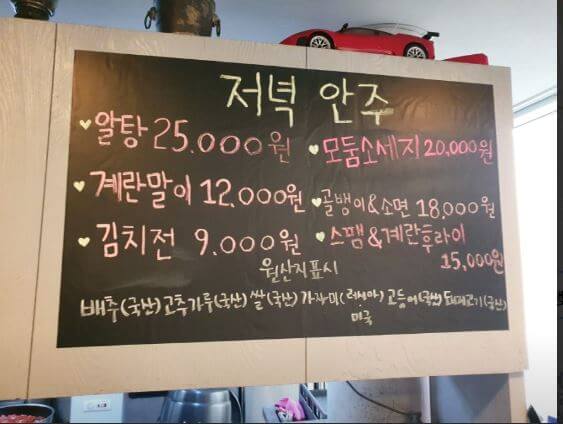 저녁 안주
알탕 25.000원
모둠소세지 20,000원
계란말이 12.000원
골뱅이&소면 18.000원
김치전 9.000원
스팸&계란후라이
15,000원
원산지표시
배추(국산)고추가루(국산)쌀(국산)가자미(러시아)고등어(국산)돼지고기(국산)
미국